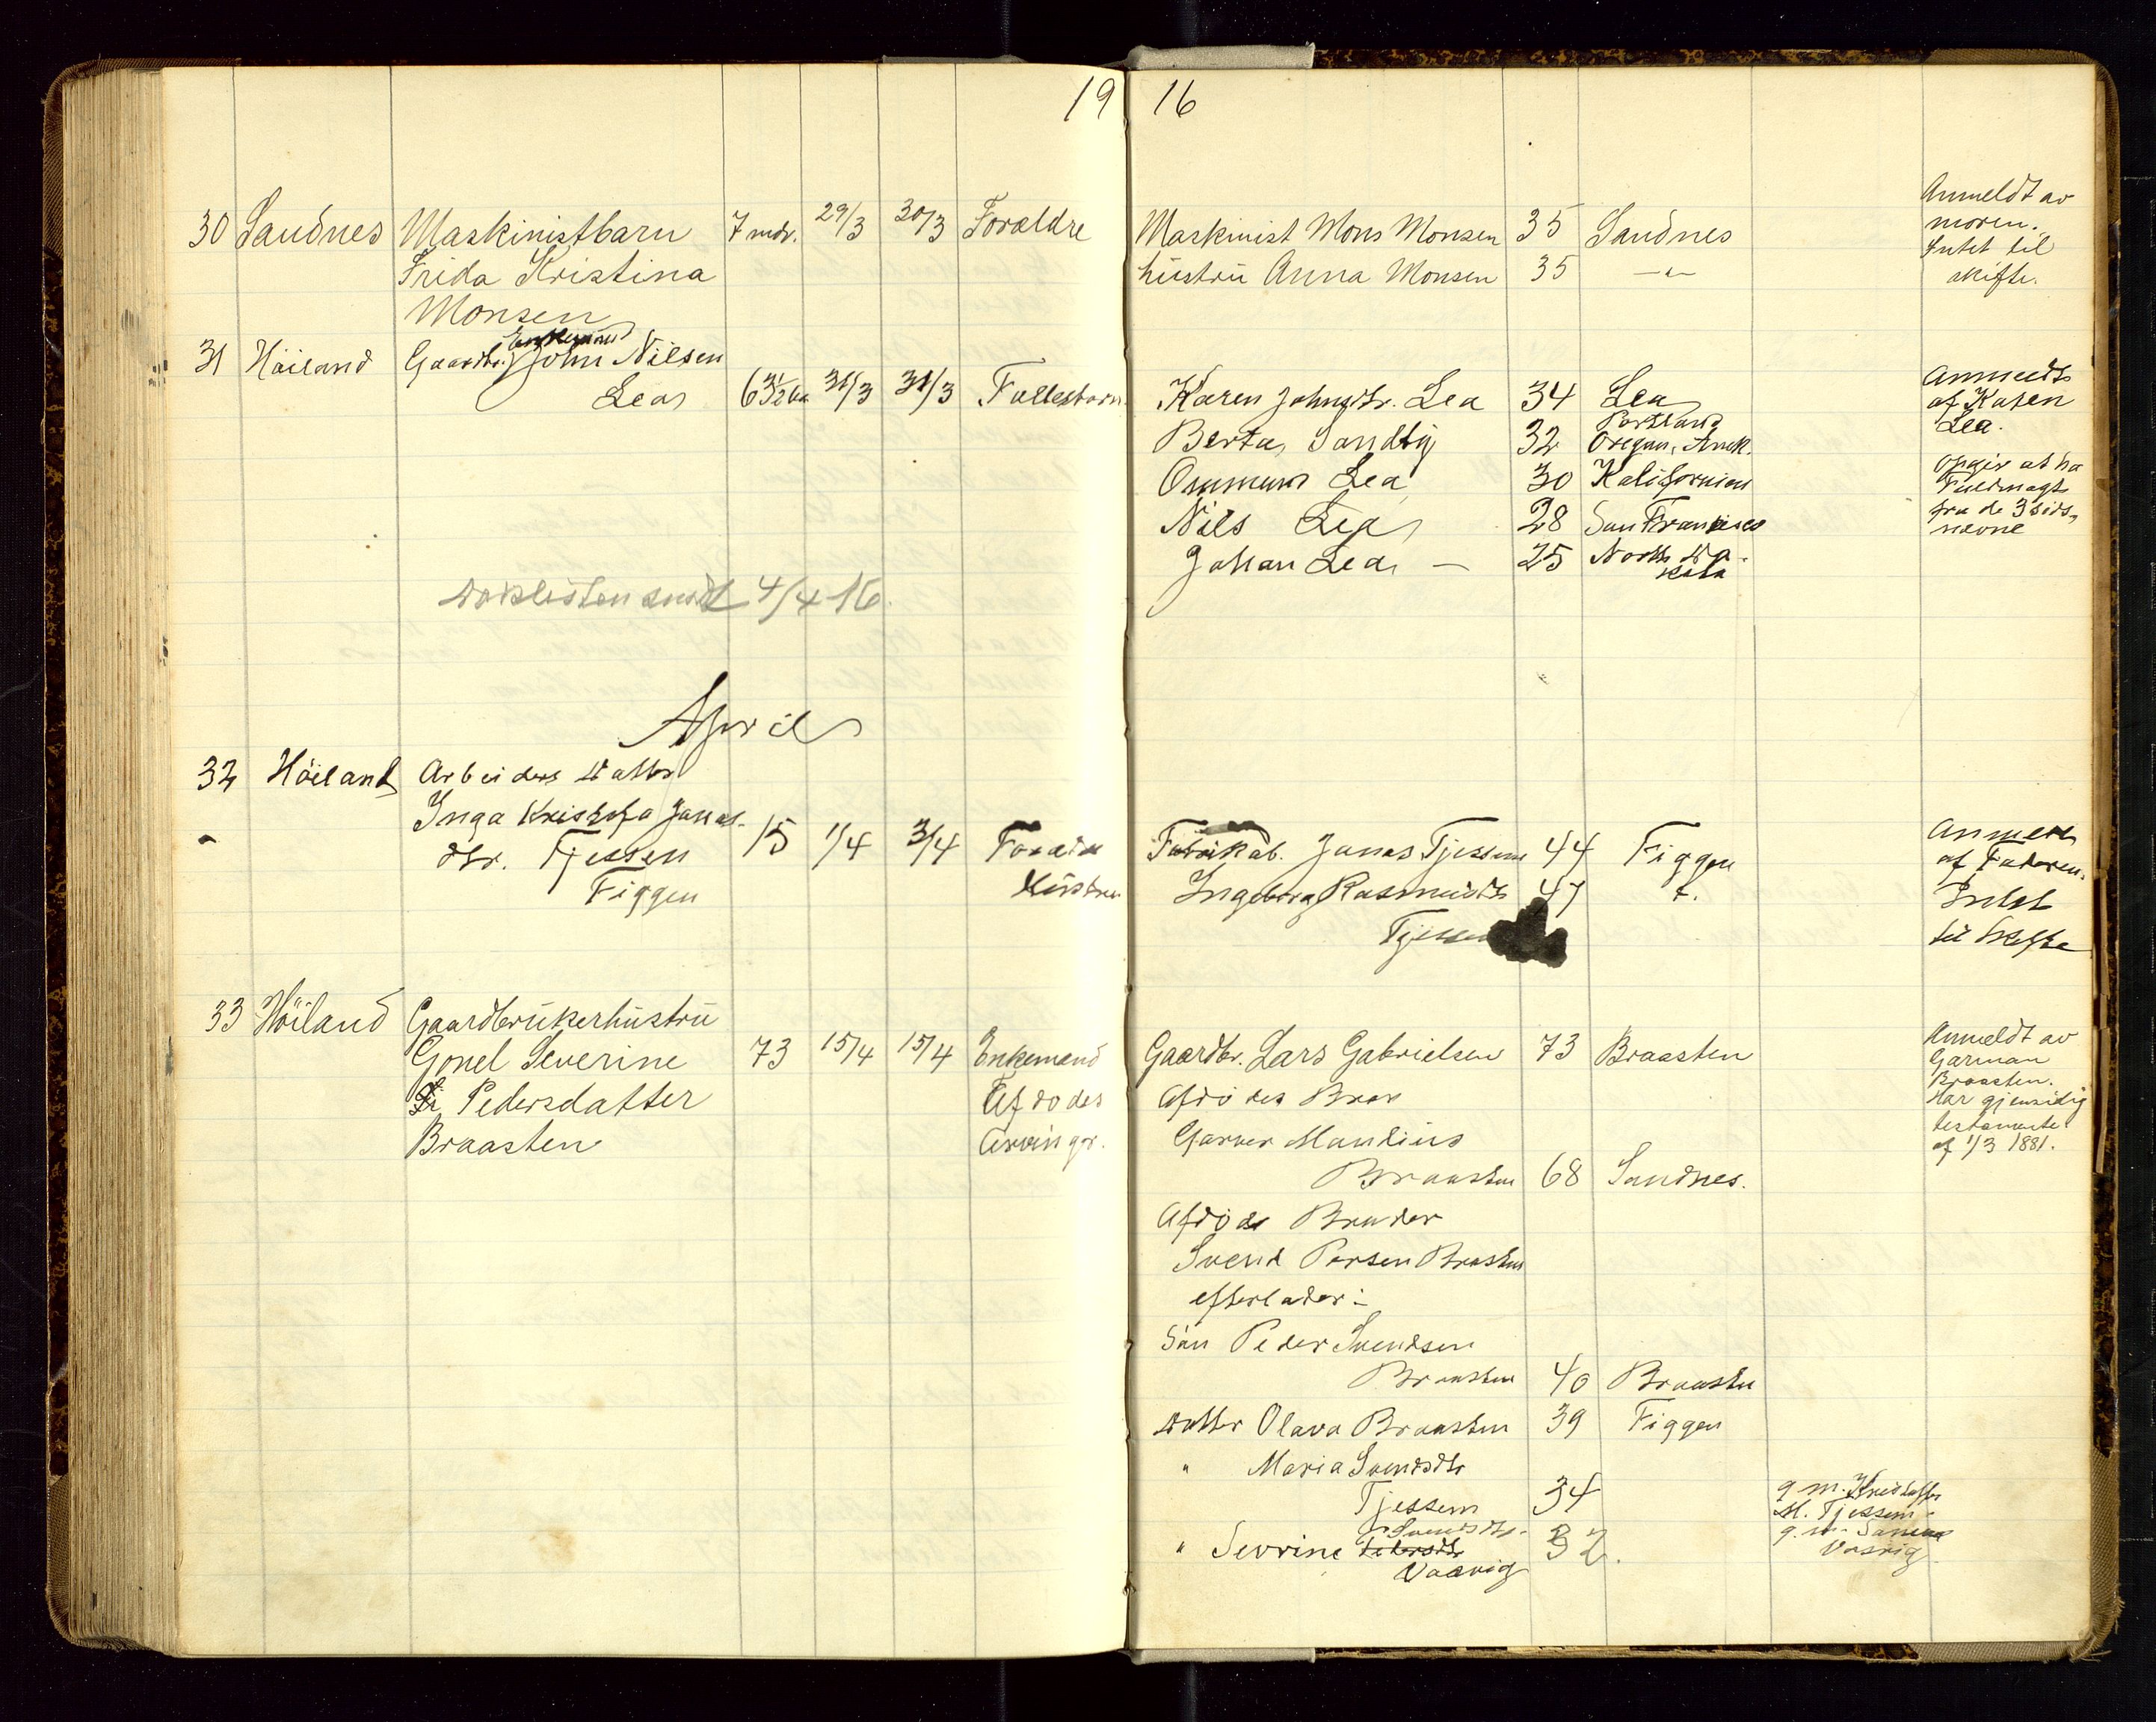 19 16
30 Sandnes Maskinistbarn 7 mdr. 29/3 30/3 Forældre Maskinist Mons Monsen 35 Sandnes Anmeldt av
Frida Kristina hústrú Anna Monsen 35 —"— moren.
Monsen Intet til
skifte.
Enkemand
31 Höiland Gaardbr. John Nilsen
Lea 31/3 31/3 Fællesbarn Karen Johnsdtr. Lea 34 Lea Anmeldt
Portland af Karen
Berta Sandvig 32 Oregon, Amk. Lea.
Ommund Lea 30 Kalifornien Opgir at ha
Nils Lea 28 San Francisco Fuldmagt
Johan Lea — 25 North Da- fra de 3 sidst
kota nævnte
Dødslisten sendt 4/4-16.
April
32 Höiland Arbeiders Datter
Inga Kristofa Jonas-
dtr. Tjessem 15 1/4 3/4 Forældre Fabrikab. Jonas Tjessem 44 Figgen Anmeldt
Figgen Hústru Ingeborg Rasmusdtr 47 t. af Faderen.
Tjessem Intet
til Skifte
33 Höiland Gaardbrúkerhústrú
Gonel Severine 73 15/4 15/4 Enkemand Gaardbr. Lars Gabrielsen 73 Braasten Anmeldt av
Pedersdatter Afdødes Afdödes Bror Garman
Braasten Arvinger. Garver Mauritius Braasten.
Braasten 68 Sandnes. Har gjensidig
Afdöde Broder testamente
Svend Persen Braasten af 1/3 1881.
efterlader:
Sön Peder Svendsen
Braasten 40 Braasten
Datter Olava Braasten 39 Figgen
" Maria Svendsdtr
Tjessem 34 g. m. Kristoffer
M. Tjessem
Svendsdtr.
" Sevrine Pedersdtr 32. g. m.
Vasvig Vasvig